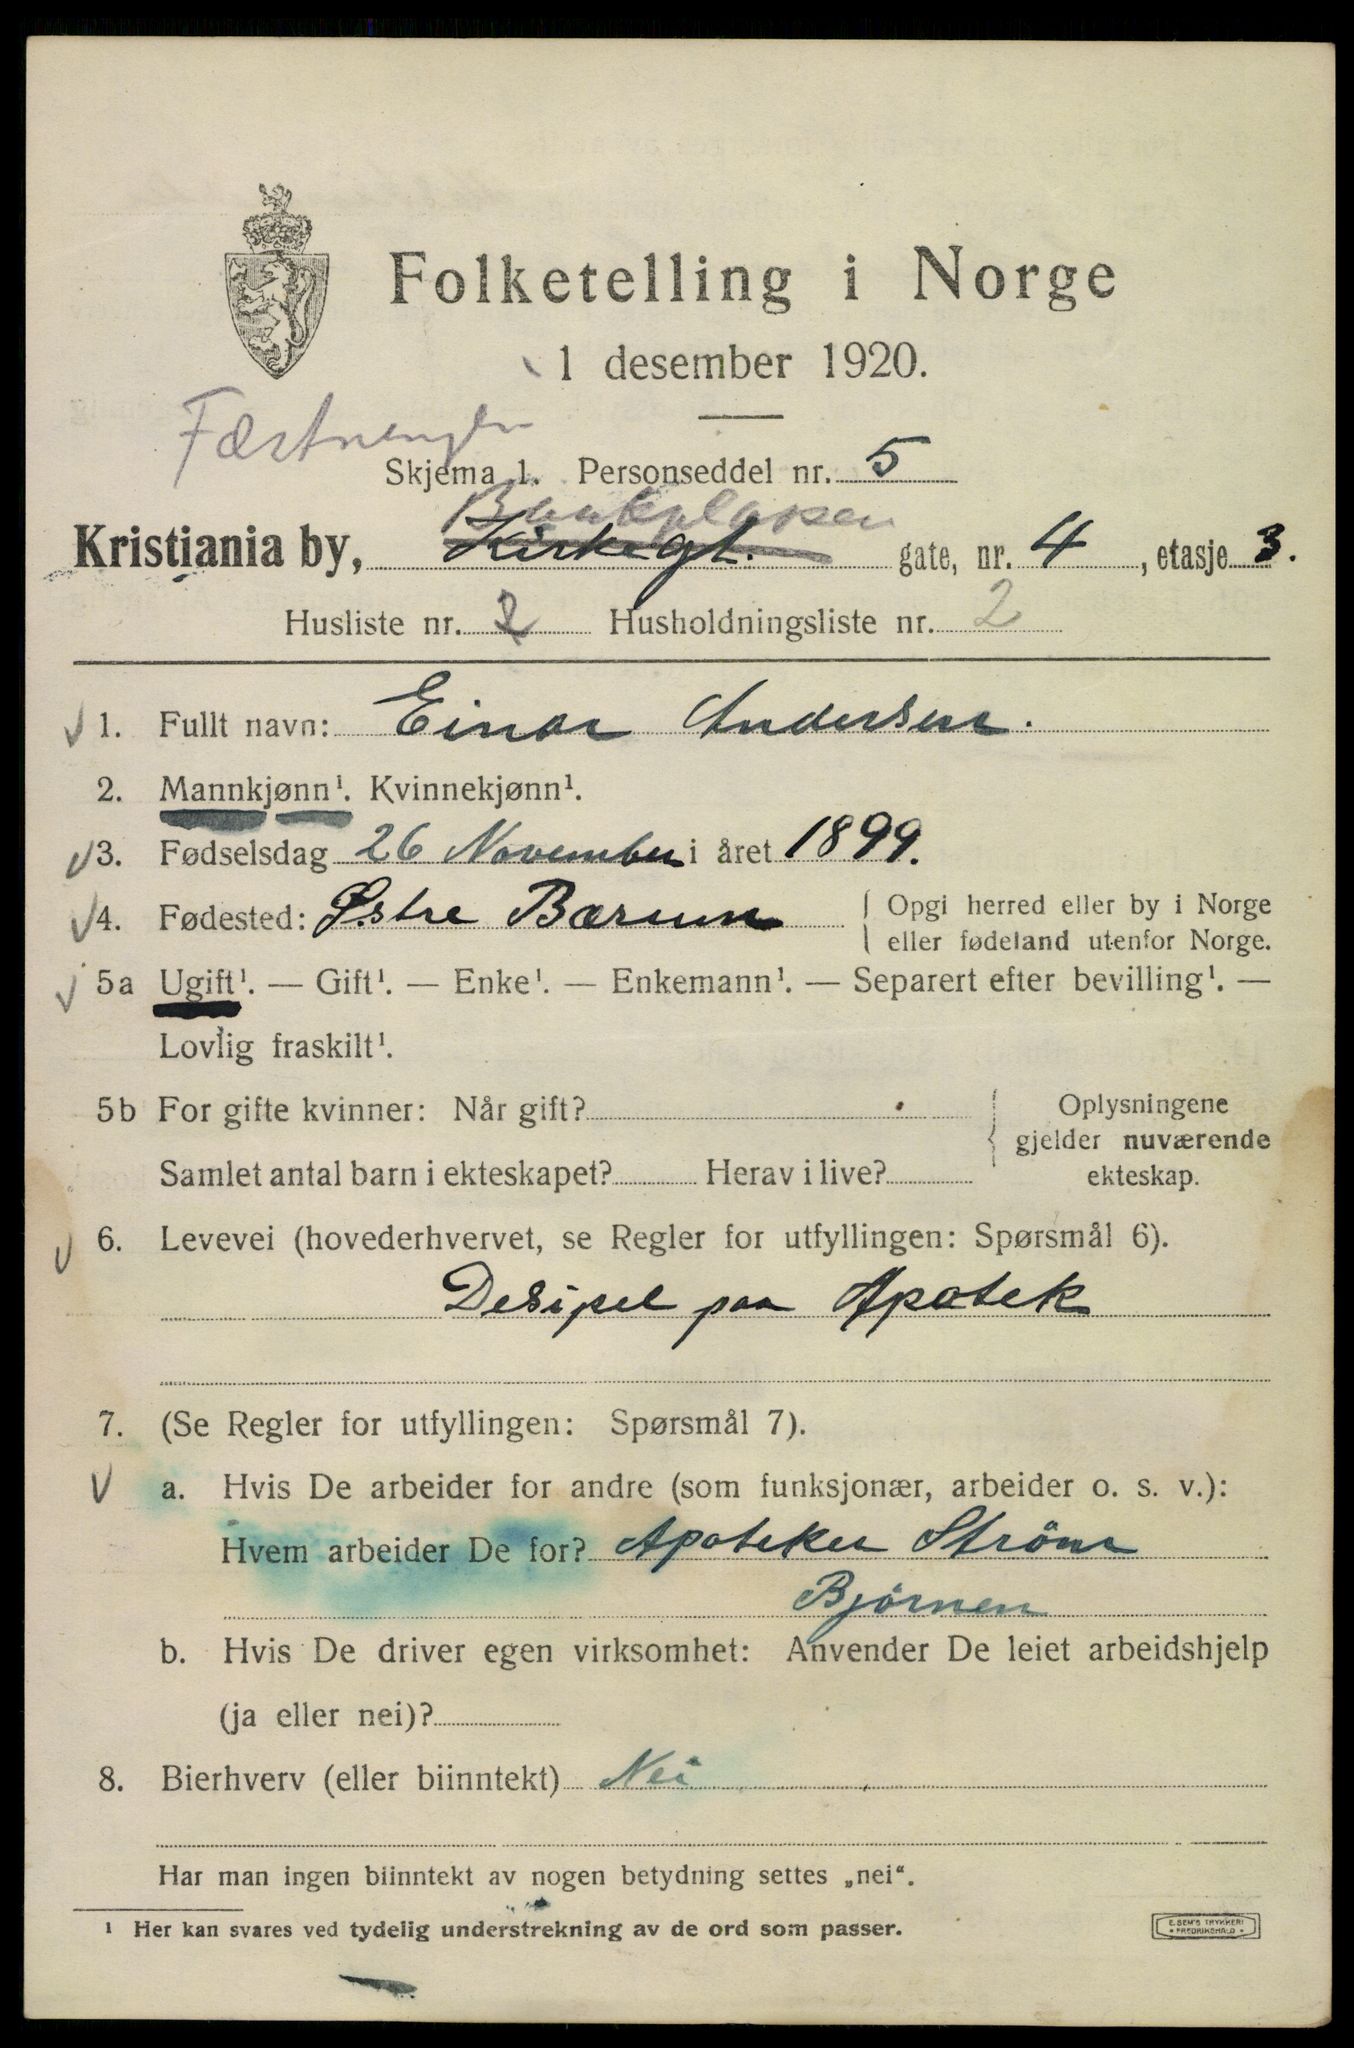 Folketelling i Norge
1 desember 1920.
Fæstningen
Skjema 1. Personseddel nr. 5
Bankplassen
Kristiania by, Kirkegt. gate, nr. 4, etasje 3.
Husliste nr. 2 Husholdningsliste nr. 2
1. Fullt navn: Einar Andersen.
2. Mannkjønn¹. Kvinnekjønn¹.
3. Fødselsdag 26 November i året 1899.
4. Fødested: Østre Bærum { Opgi herred eller by i Norge
eller fødeland utenfor Norge.
5a Ugift¹. — Gift¹. — Enke¹. — Enkemann¹. — Separert efter bevilling¹. —
Lovlig fraskilt¹.
5b For gifte kvinner: Når gift? { Oplysningene
gjelder nuværende
Samlet antal barn i ekteskapet? Herav i live? ekteskap.
6. Levevei (hovederhvervet, se Regler for utfyllingen: Spørsmål 6).
Desipel paa Apotek
7. (Se Regler for utfyllingen: Spørsmål 7).
a. Hvis De arbeider for andre (som funksjonær, arbeider o. s. v.):
Hvem arbeider De for? Apoteker Ström
Bjørnen
b. Hvis De driver egen virksomhet: Anvender De leiet arbeidshjelp
(ja eller nei)?
8. Bierhverv (eller biinntekt) Nei
Har man ingen biinntekt av nogen betydning settes „nei“.
¹ Her kan svares ved tydelig understrekning av de ord som passer.
E. SEM'S TRYKKERI
FREDRIKSHALD